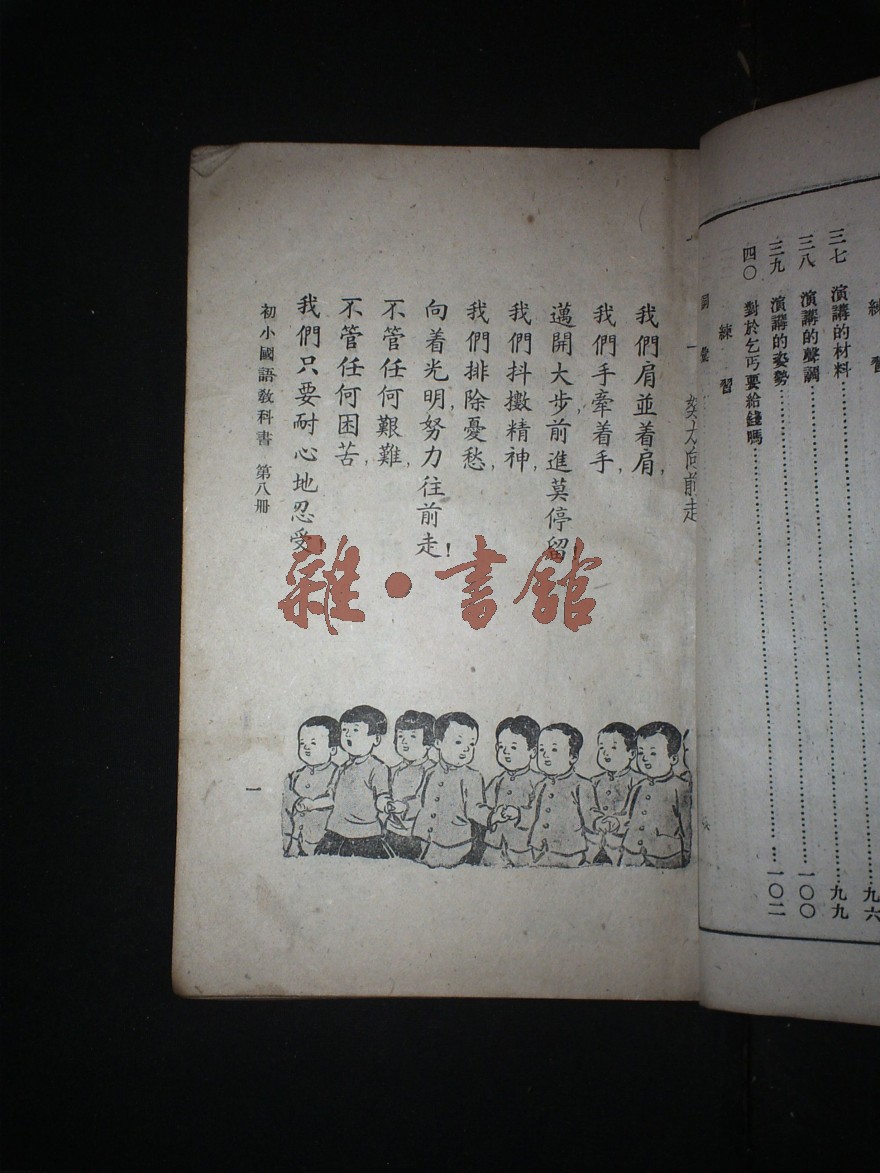 練習 九六
三七 演講的材料 九九
三八 演講的聲調 一〇〇
三九 演講的姿勢 一〇二
四〇 對於乞丐要給錢嗎
練習
一 向前走
我們肩並着肩，
我們手牽着手，
邁開大步，前進莫停留！
我們抖擻精神，
我們排除憂愁，
向着光明，努力往前走！
不管任何艱難，
不管任何困苦，
我們只要耐心地忍受！
初小國語教科書 第八册
一
雜·書館